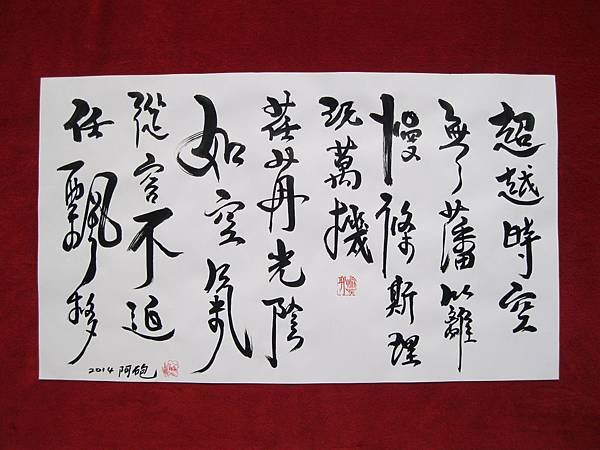 超越時空
無藩籬
慢條斯理
玩萬機
荏苒光陰
如空氣
從容不迫
任飄移
2014 阿砲